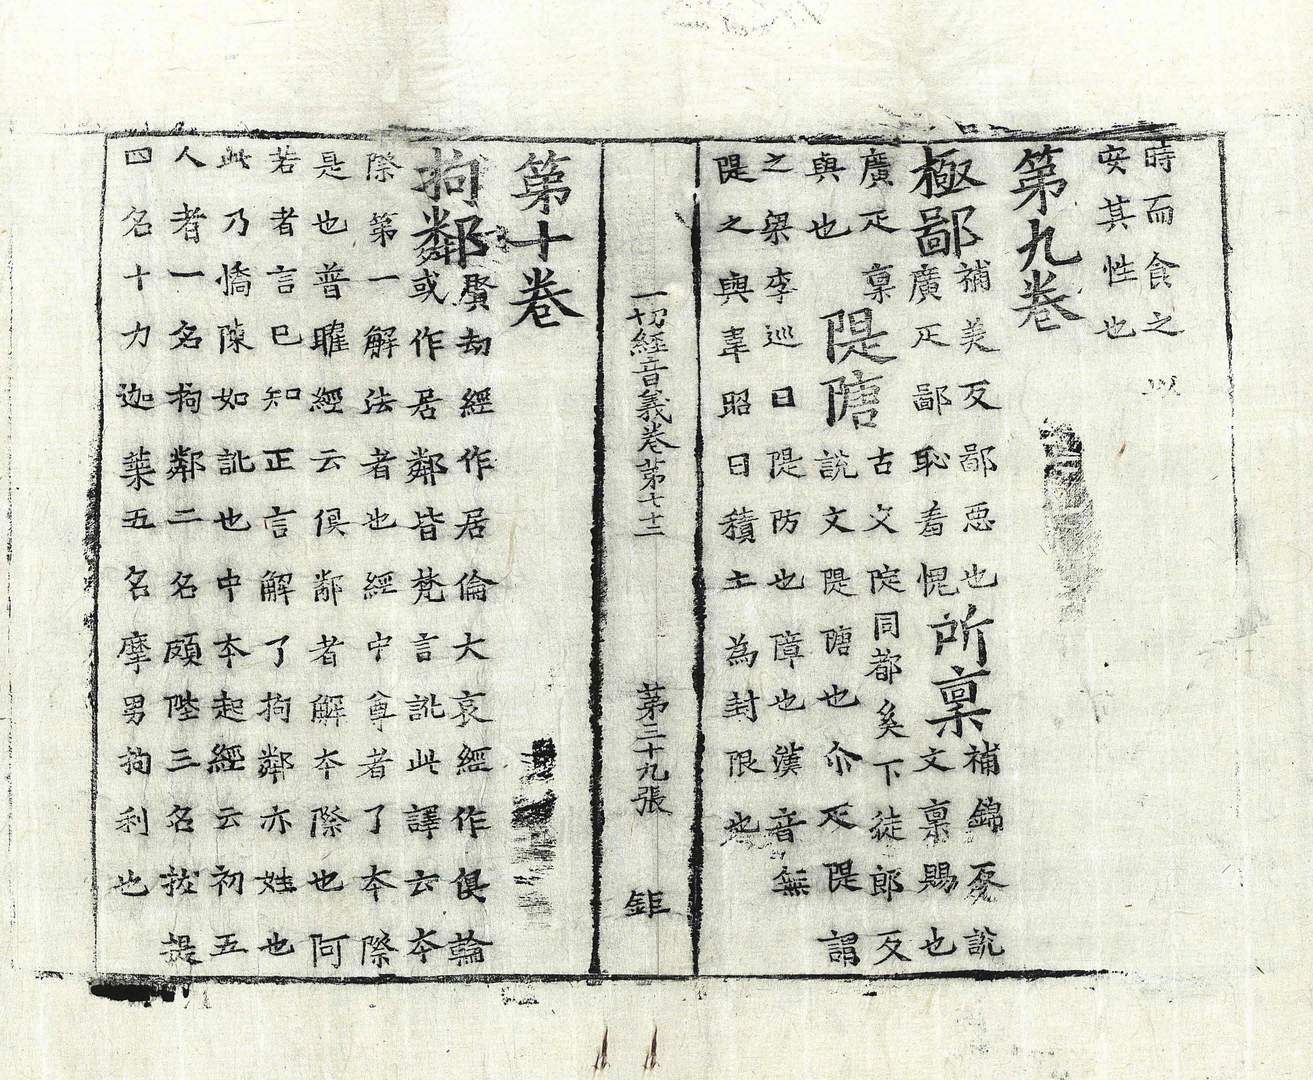 時而食之以
安其性也
第九卷
極鄙補美反鄙惡也廣疋鄙恥羞愧所禀補錦反說文禀賜也
廣疋禀與也隄隚古文院同都奚下徒郎反說文隄隚也尒疋隄謂
之梁李巡曰隄防也障也漢音無
隄之與韋昭曰積土為封限也
一切經音義卷第七十二 第三十九張 鉅
第十卷
拘鄰賢劫經作居倫大哀經作俱輪或作居鄰皆梵言訛此譯云本
際第一解法者也經中尊者了本際
是也普曜經云俱鄰者解本際也阿
若者言已知正言解了拘鄰亦姓也
此乃憍陳如訛也中本起經云初五
人者一名拘鄰二名頞陛三名拔提
四名十力迦葉五名摩男拘利也